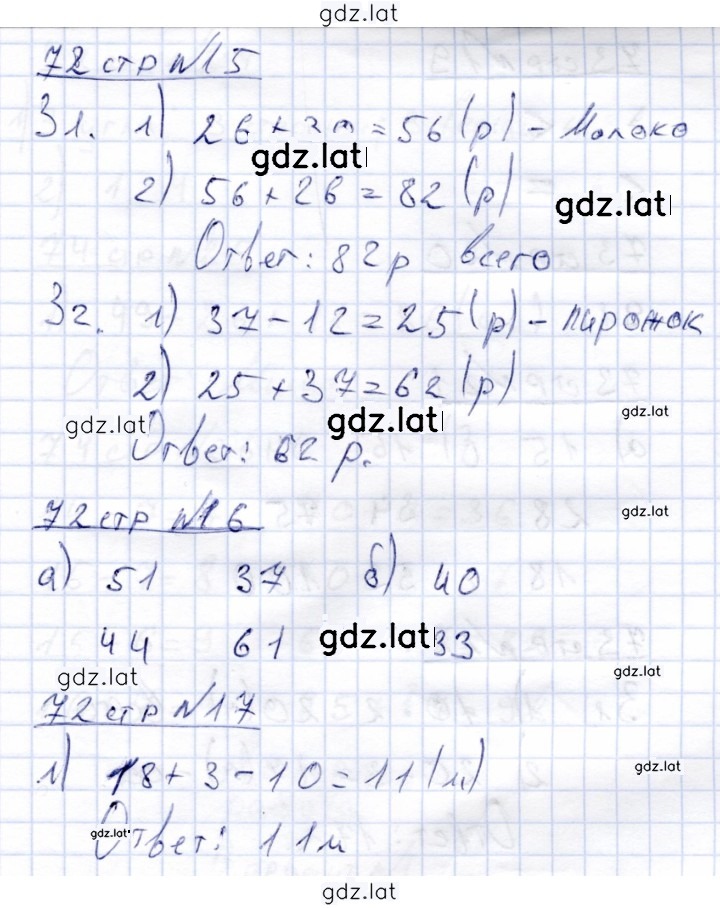 gdz.lat
72 стр №15
З1. 1) 26 + 30 = 56 (р) - Молоко
gdz.lat
2) 56 + 26 = 82 (р)
gdz.lat
Ответ: 82 р всего
З2. 1) 37 - 12 = 25 (р) - пирожок
2) 25 + 37 = 62 (р)
gdz.lat gdz.lat gdz.lat
Ответ: 62 р.
72 стр №16 gdz.lat
а) 51 37 б) 40
44 61 gdz.lat 33
gdz.lat gdz.lat
72 стр №17
1) 18 + 3 - 10 = 11 (м) gdz.lat
gdz.lat Ответ: 11 м
gdz.lat